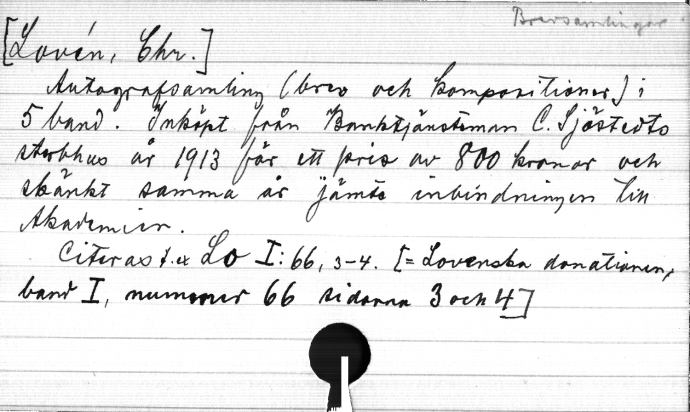 Brevsamlingar
[Lovén, Chr.]
Autografsamling (brev och kompositioner) i
5 band. Inköpt från Banktjänsteman C. Sjöstedts
sterbhus år 1913 för ett pris av 800 kronor och
skänkt samma år jämte inbindningen till
Akademien.
Citeras t.ex Lo I: 66, 3-4. [= Lovénska donationen,
band I, nummer 66 sidorna 3 och 4]